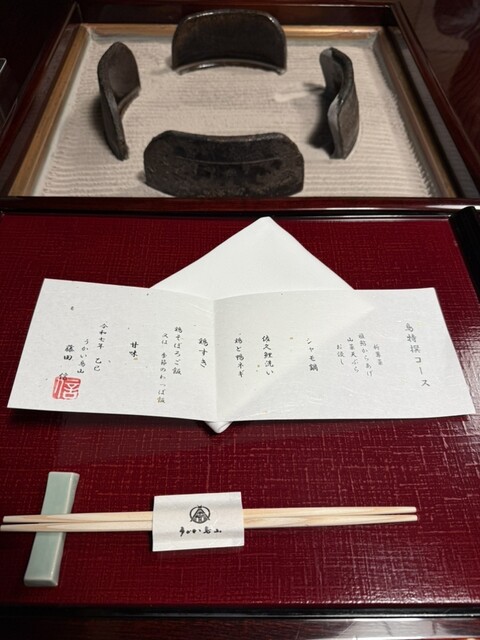 鳥特撰コース
からあげ
山菜天ぷら
お浸し
シャモ鍋
佐久鯉洗い
鶏と鴨ネギ
鶏すき
鶏そぼろご飯
又は 季節のわっぱ飯
甘味
令和七年 乙巳
うかい鳥山
藤田
うかい鳥山